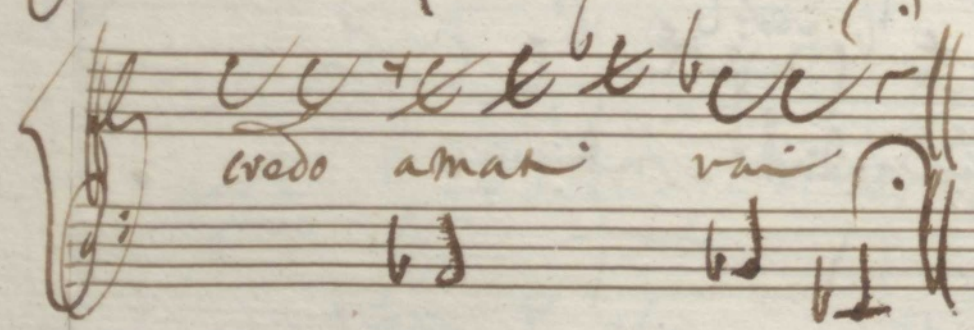 credo amati vai